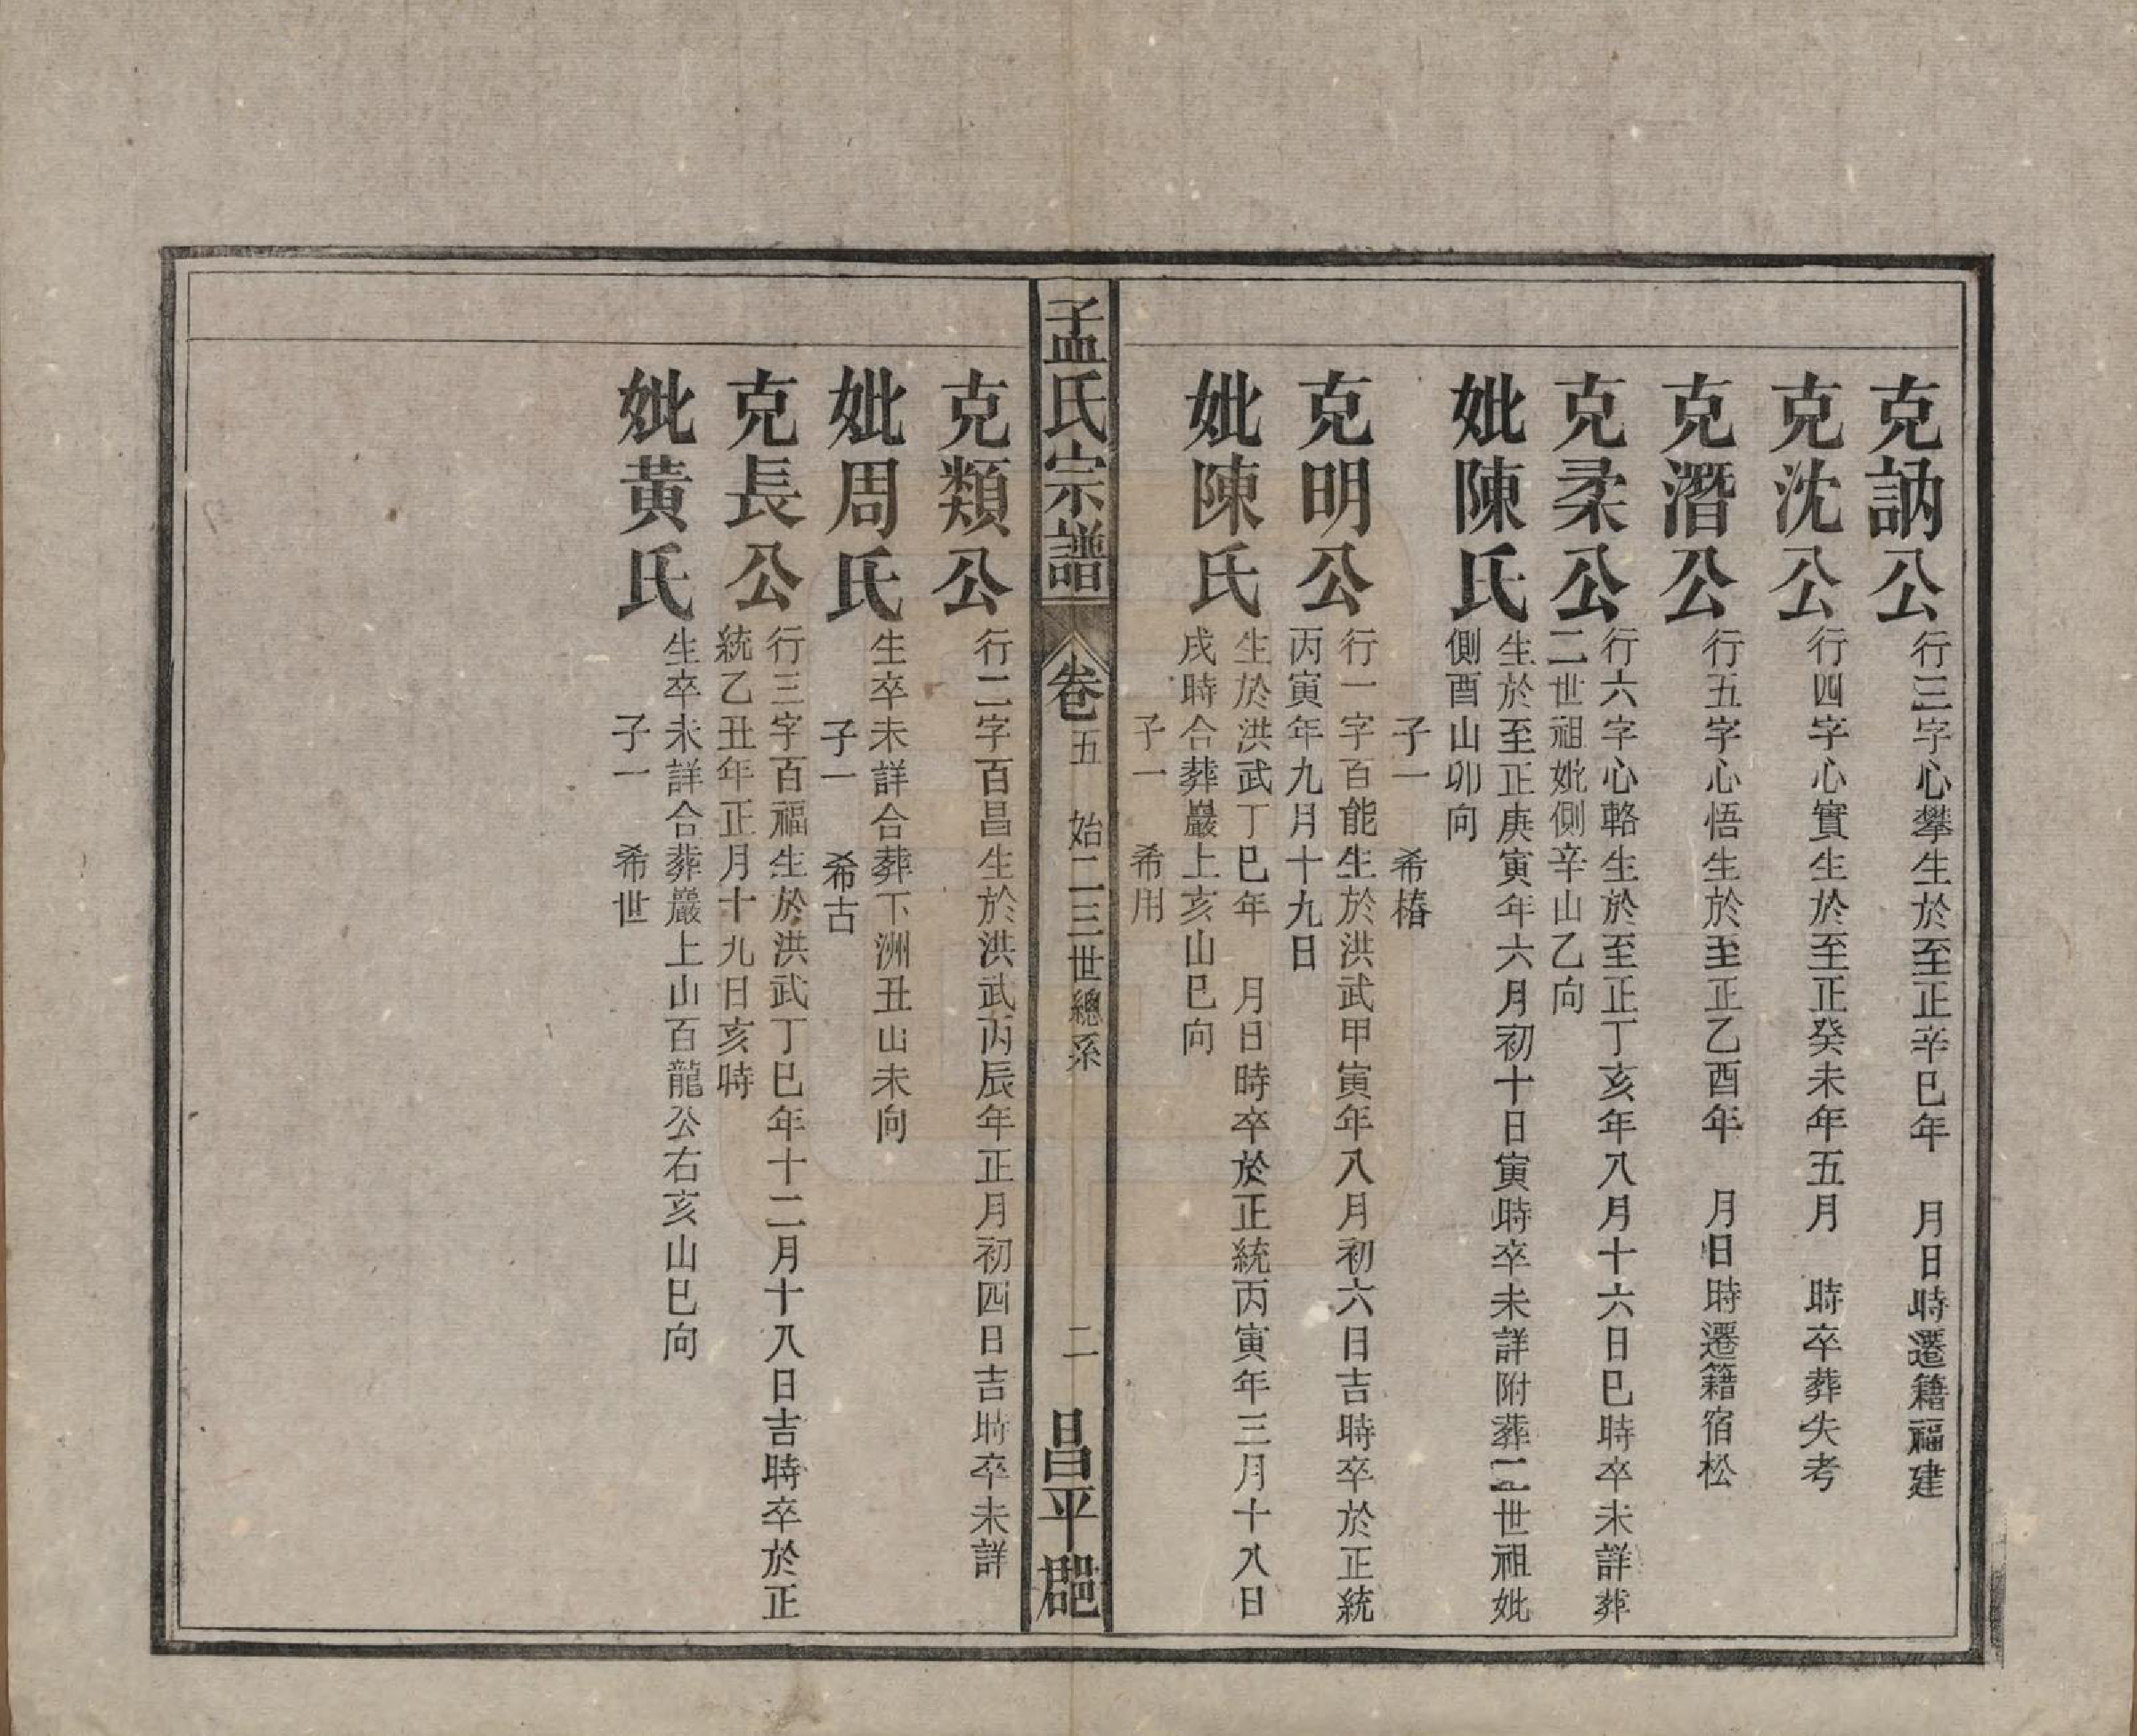 克訥公
行三字心攀生於至正辛巳年　月日時遷籍福建
克沈公
行四字心實生於至正癸未年五月　時卒葬失考
克潛公
行五字心悟生於至正乙酉年　月日時遷籍宿松
克柔公
行六字心輅生於至正丁亥年八月十六日巳時卒未詳葬
二世祖妣側辛山乙向
妣陳氏
生於至正庚寅年六月初十日寅時卒未詳附葬二世祖妣
側酉山卯向
子一　希椿
克明公
行一字百能生於洪武甲寅年八月初六日吉時卒於正統
丙寅年九月十九日
妣陳氏
生於洪武丁巳年　月日時卒於正統丙寅年三月十八日
戌時合葬巖上亥山巳向
子一　希用
孟氏宗譜　卷五　始二三世總系　二　昌平郡
克類公
行二字百昌生於洪武丙辰年正月初四日吉時卒未詳
妣周氏
生卒未詳合葬下洲丑山未向
子一　希古
克長公
行三字百福生於洪武丁巳年十二月十八日吉時卒於正
統乙丑年正月十九日亥時
妣黃氏
生卒未詳合葬巖上山百龍公右亥山巳向
子一　希世